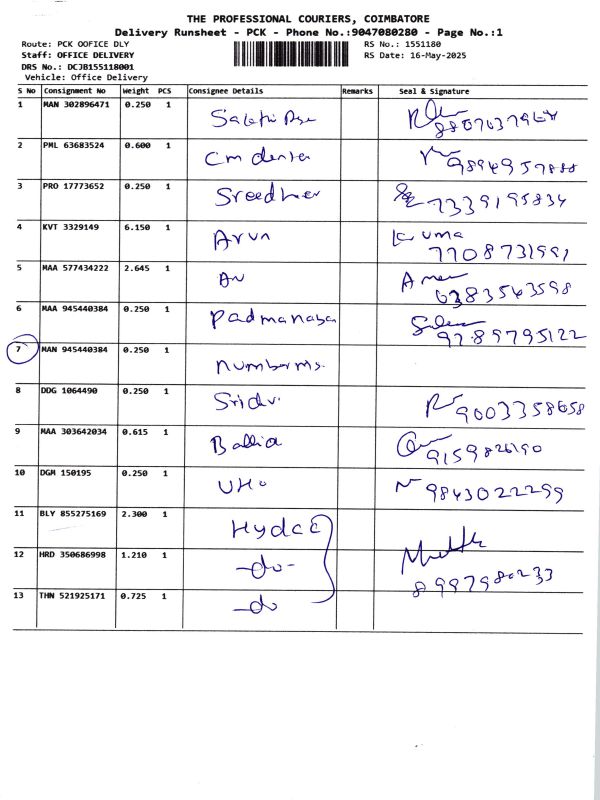 THE PROFESSIONAL COURIERS, COIMBATORE
Delivery Runsheet - PCK - Phone No.:9047080280 - Page No.:1
Route: PCK OOFICE DLY RS No.: 1551180
Staff: OFFICE DELIVERY RS Date: 16-May-2025
DRS No.: DCJB155118001
Vehicle: Office Delivery
S No Consignment No Weight PCS Consignee Details Remarks Seal & Signature
1 MAN 302896471 0.250 1
2 PML 63683524 0.600 1 Cm denta 9894957888
3 PRO 17773652 0.250 1 Sreedher 7339195834
4 KVT 3329149 6.150 1 Arun Kuma
7708731991
5 MAA 577434222 2.645 1 Av
6383543598
6 MAA 945440384 0.250 1 Padmanaba
9789795122
7 MAN 945440384 0.250 1
8 DDG 1064490 0.250 1 9003358658
9 MAA 303642034 0.615 1 9159826190
10 DGM 150195 0.250 1 9843022299
11 BLY 855275169 2.300 1
12 HRD 350686998 1.210 1 -do-
8997980233
13 THN 521925171 0.725 1 -do